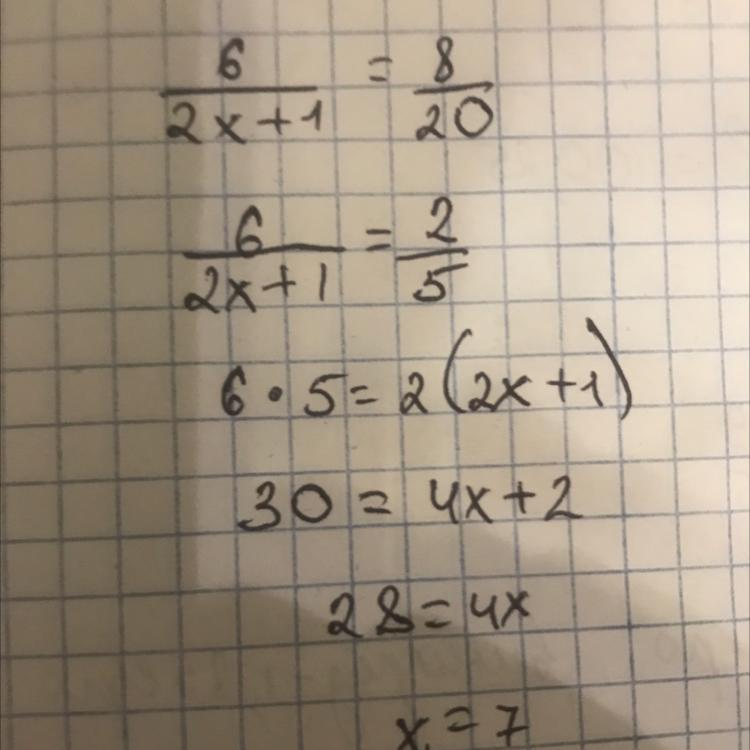 6/(2x+1) = 8/20
6/(2x+1) = 2/5
6 · 5 = 2(2x+1)
30 = 4x+2
28 = 4x
x = 7